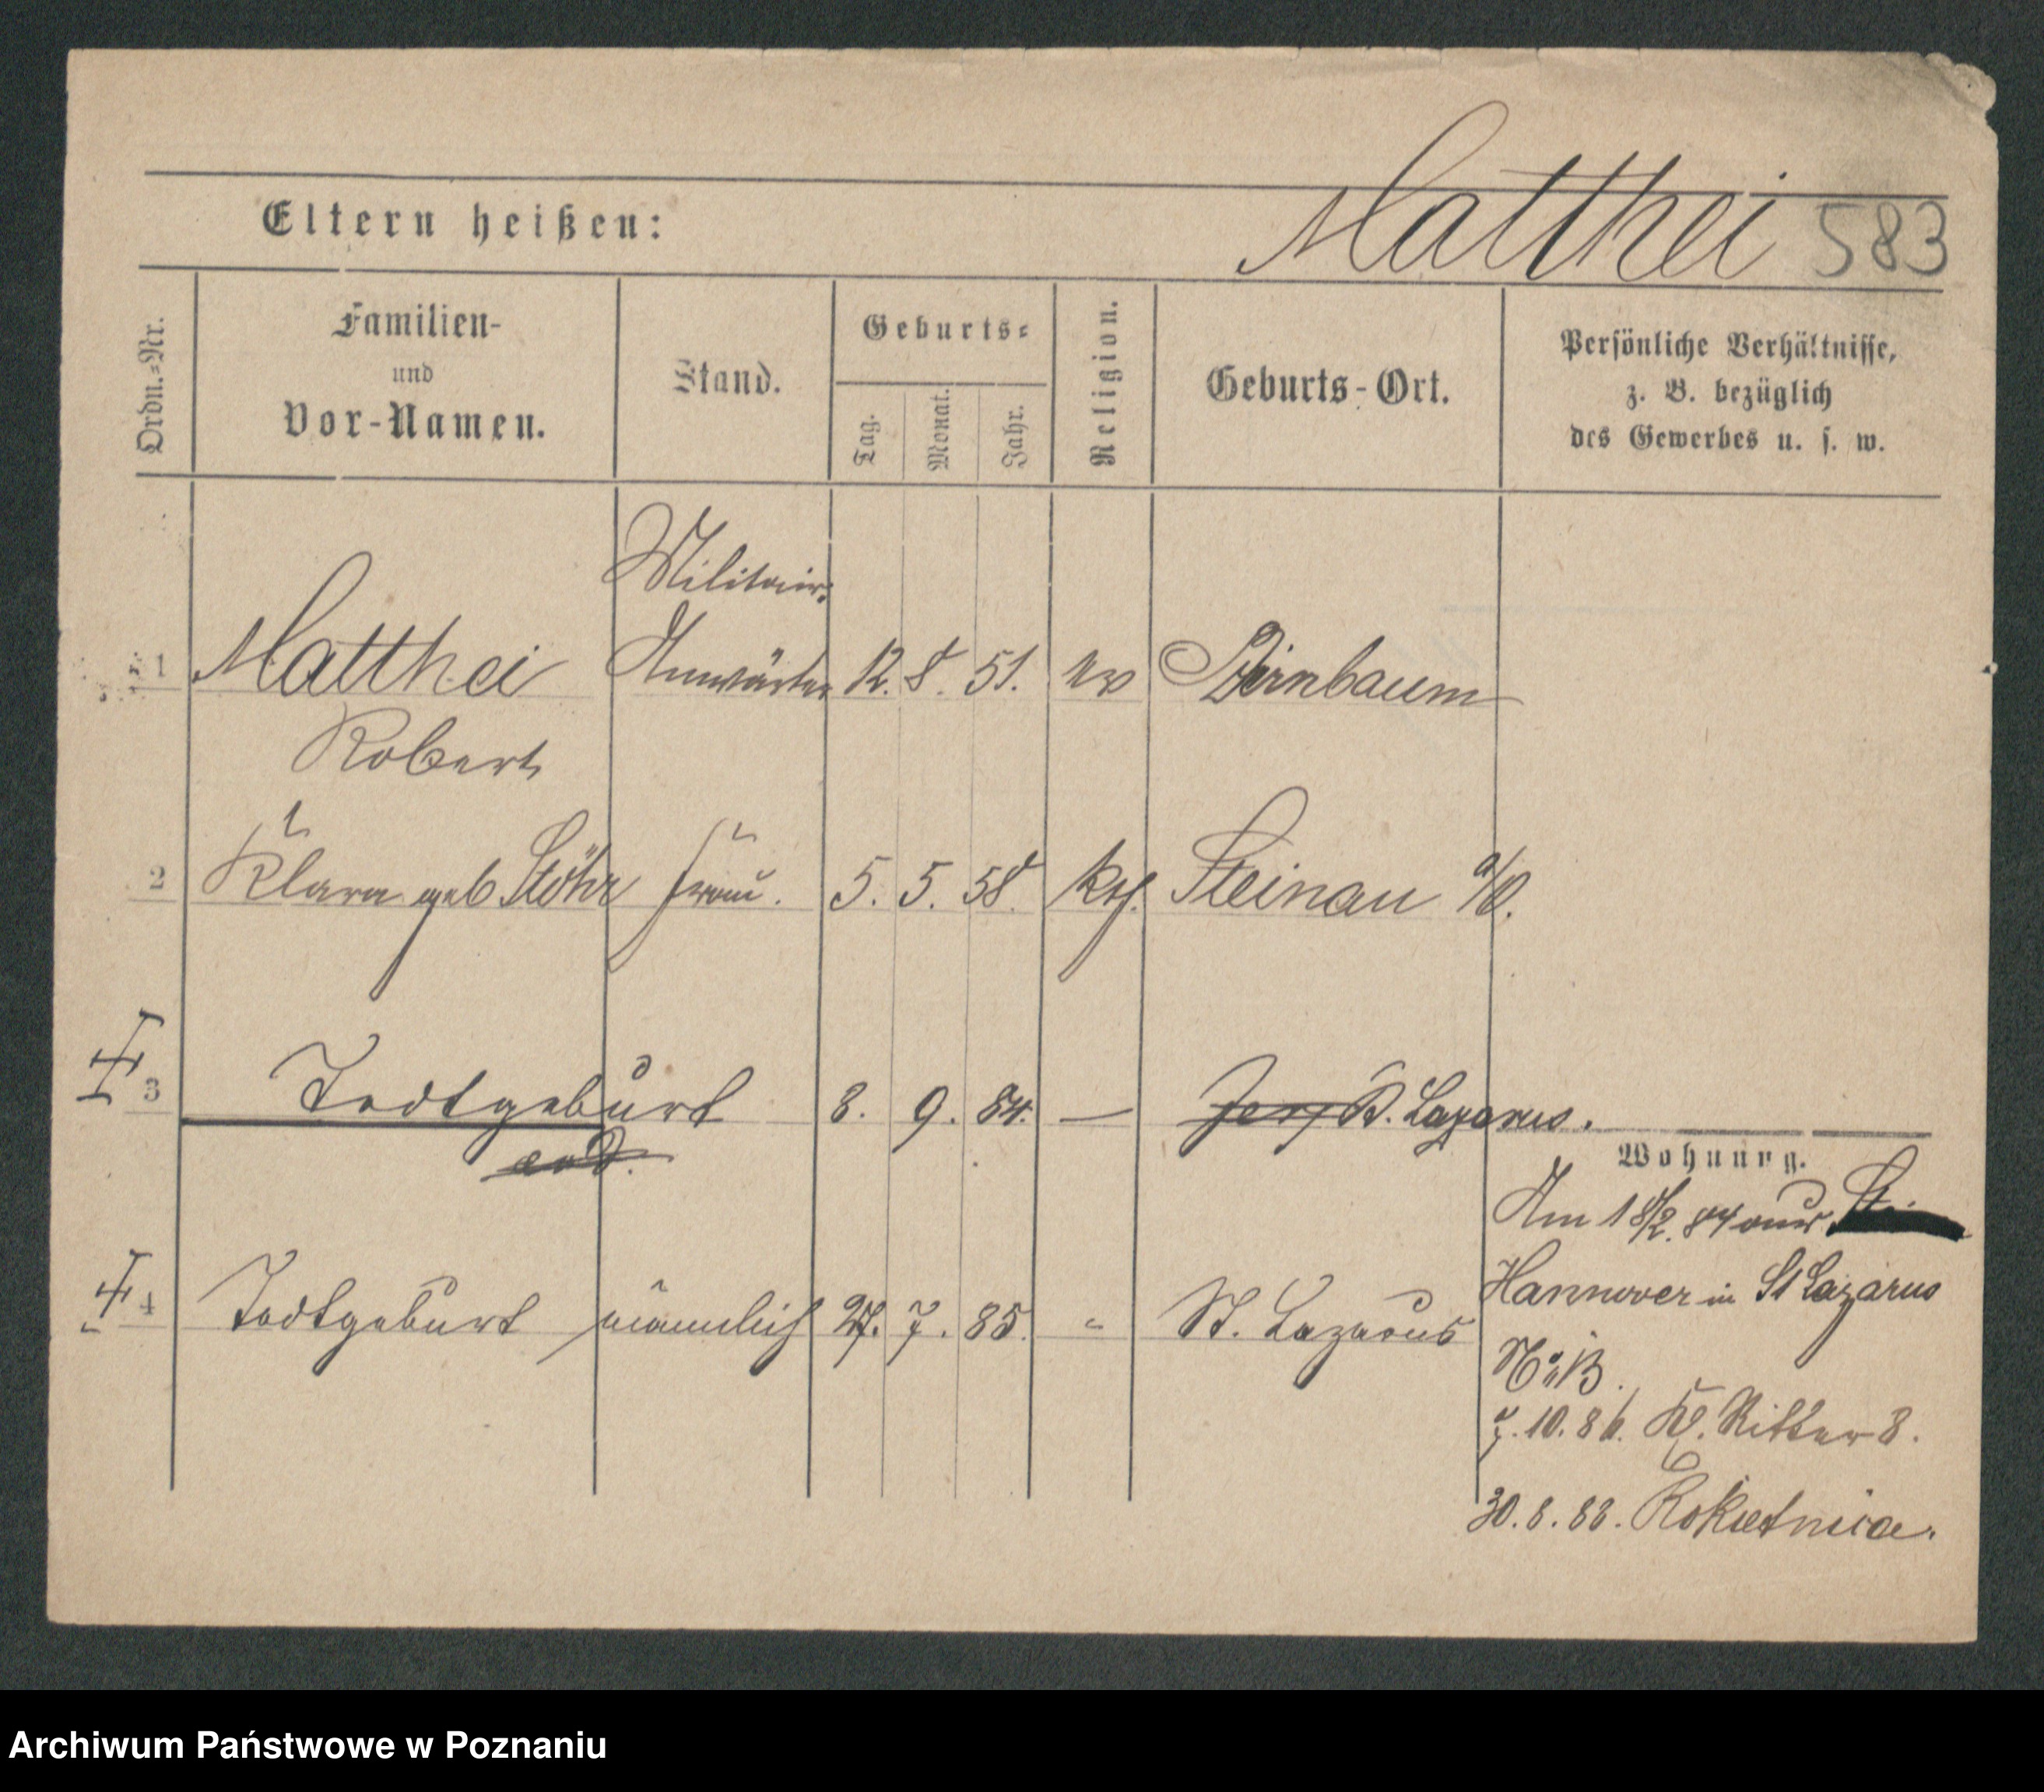 Matthei 583
Eltern heißen:
Ordn.-Nr.
Familien-
und
Vor-Namen.
Stand.
Geburts-
Tag.
Monat.
Jahr.
Religion.
Geburts-Ort.
Persönliche Verhältnisse,
z. B. bezüglich
des Gewerbes u. s. w.
Militair-
1 Matthei Anwärter 12. 8. 51. ev Birnbaum
Robert
2 Klara geb Stöhr Frau. 5. 5. 58. kth. Steinau a/O.
3 Todtgeburt 8. 9. 84. — St. Lazarus.
Wohnung.
Am 18/2. 84 aus
Hannover in St Lazarus
4 Todtgeburt männlich 27. 7. 85. " St. Lazarus
7. 10. 86. Kl. Ritter 8.
30. 8. 88. Rokietnica.
Archiwum Państwowe w Poznaniu